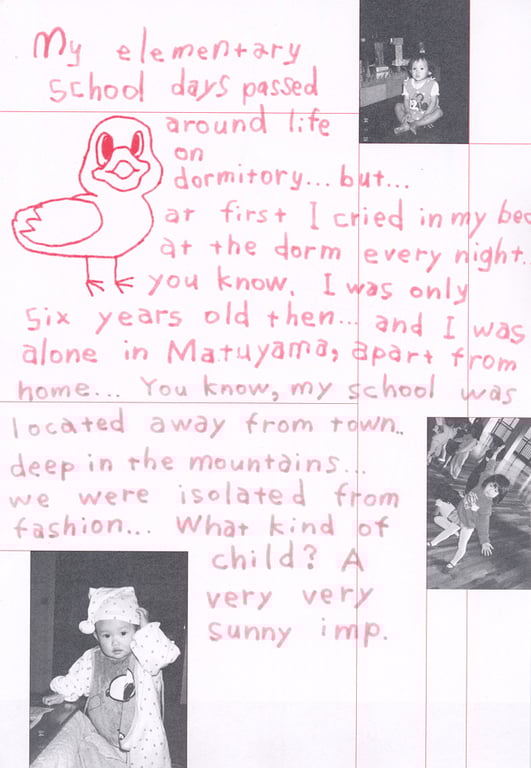 My elementary
school days passed
around life
on
dormitory... but...
at first I cried in my bed
at the dorm every night..
you know. I was only
six years old then... and I was
alone in Matuyama, apart from
home... You know, my school was
located away from town..
deep in the mountains...
we were isolated from
fashion... What kind of
child? A
very very
sunny imp.